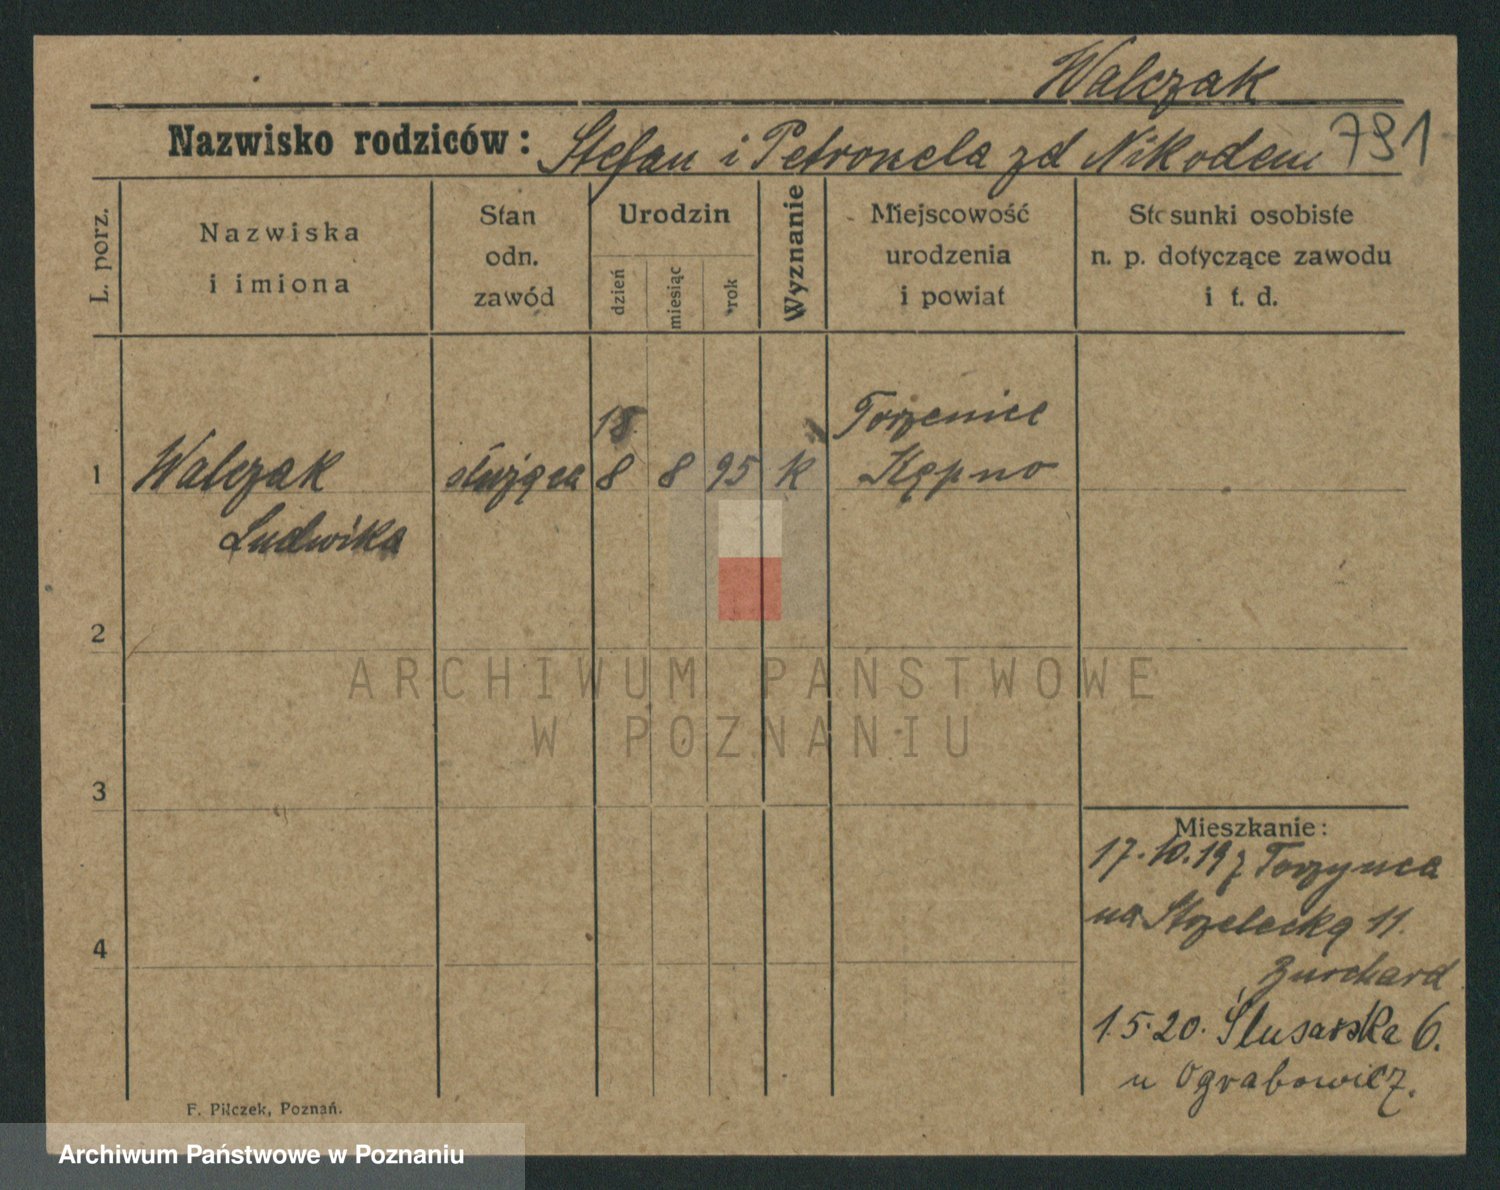 Walczak
Nazwisko rodziców: Stefan i Petronela zd Nikodem 791
L. porz.
Nazwiska
i imiona
Stan
odn.
zawód
Urodzin
dzień
miesiąc
rok
Wyznanie
Miejscowość
urodzenia
i powiat
Stosunki osobiste
n. p. dotyczące zawodu
i t. d.
18 Torzeniec
1 Walczak służąca 8 8 95 k Kępno
Ludwika
2
ARCHIWUM PAŃSTWOWE
W POZNANIU
3
Mieszkanie:
17.10.19 z
na Strzelecką 11.
4
1.5.20. Ślusarska 6.
u Ograbowicz.
F. Pilczek, Poznań.
Archiwum Państwowe w Poznaniu